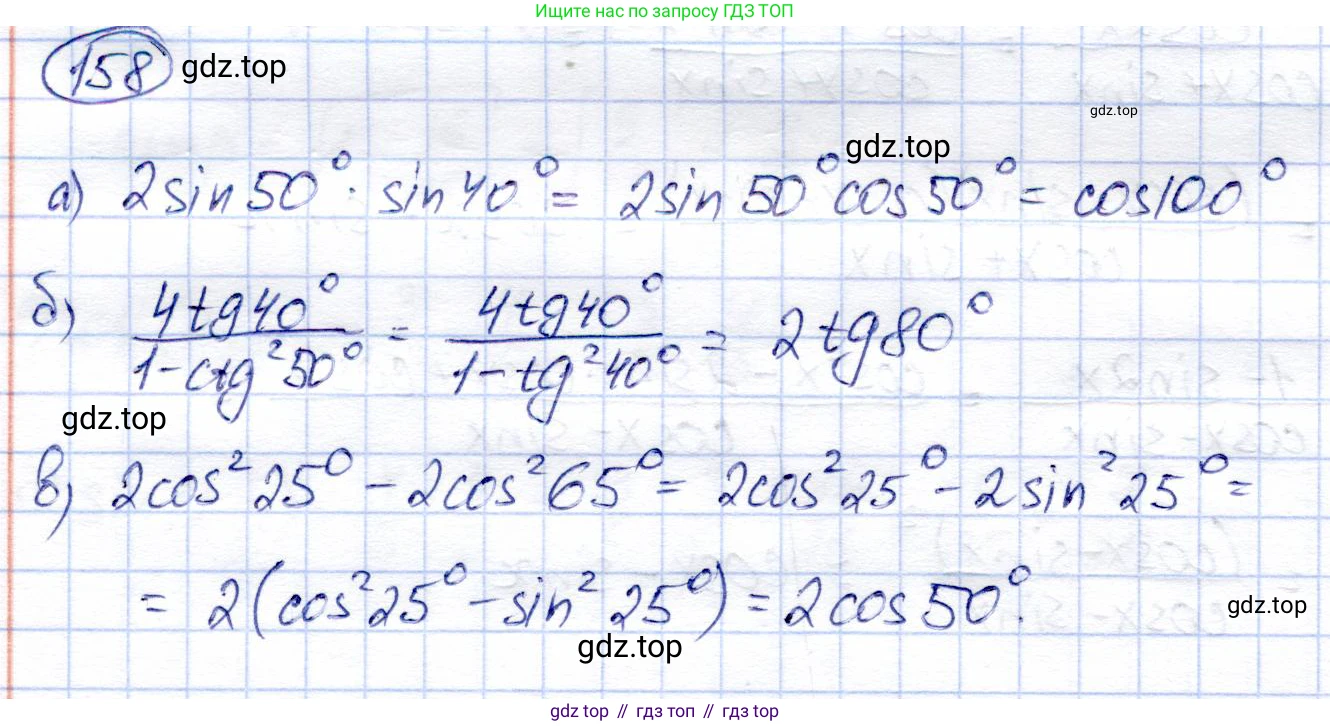 Ищите нас по запросу ГДЗ ТОП
158 gdz.top
gdz.top
gdz.top
а) 2 sin 50° · sin 40° = 2 sin 50° cos 50° = cos 100°
б) 4 tg 40° / 1 - ctg² 50° = 4 tg 40° / 1 - tg² 40° = 2 tg 80°
gdz.top
в) 2 cos² 25° - 2 cos² 65° = 2 cos² 25° - 2 sin² 25° =
= 2 (cos² 25° - sin² 25°) = 2 cos 50°.
gdz.top
gdz.top
gdz top // гдз топ // gdz top